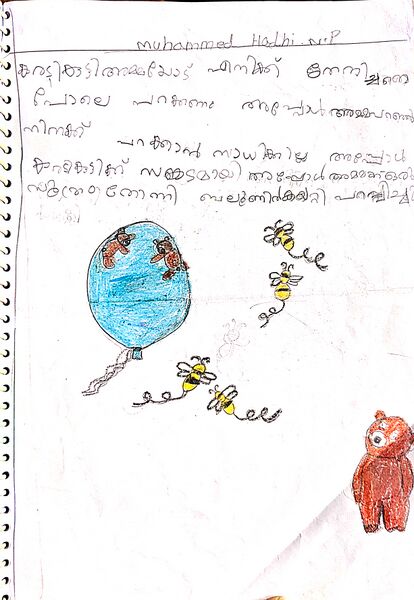 Muhammed Hadhi N.P
കരടികുട്ടി അമ്മയോട് എനിക്ക് തേനീച്ചയെ
പോലെ പറക്കണം അപ്പോൾ അമ്മപറഞ്ഞു
നിനക്ക് പറക്കാൻ സാധിക്കില്ല അപ്പോൾ
കരടികുട്ടിക്ക് സങ്കടമായി അപ്പോൾ അമ്മക്ക് ഒരു
തോന്നി ബലൂണിൻ കയറ്റി പറപ്പിച്ചു